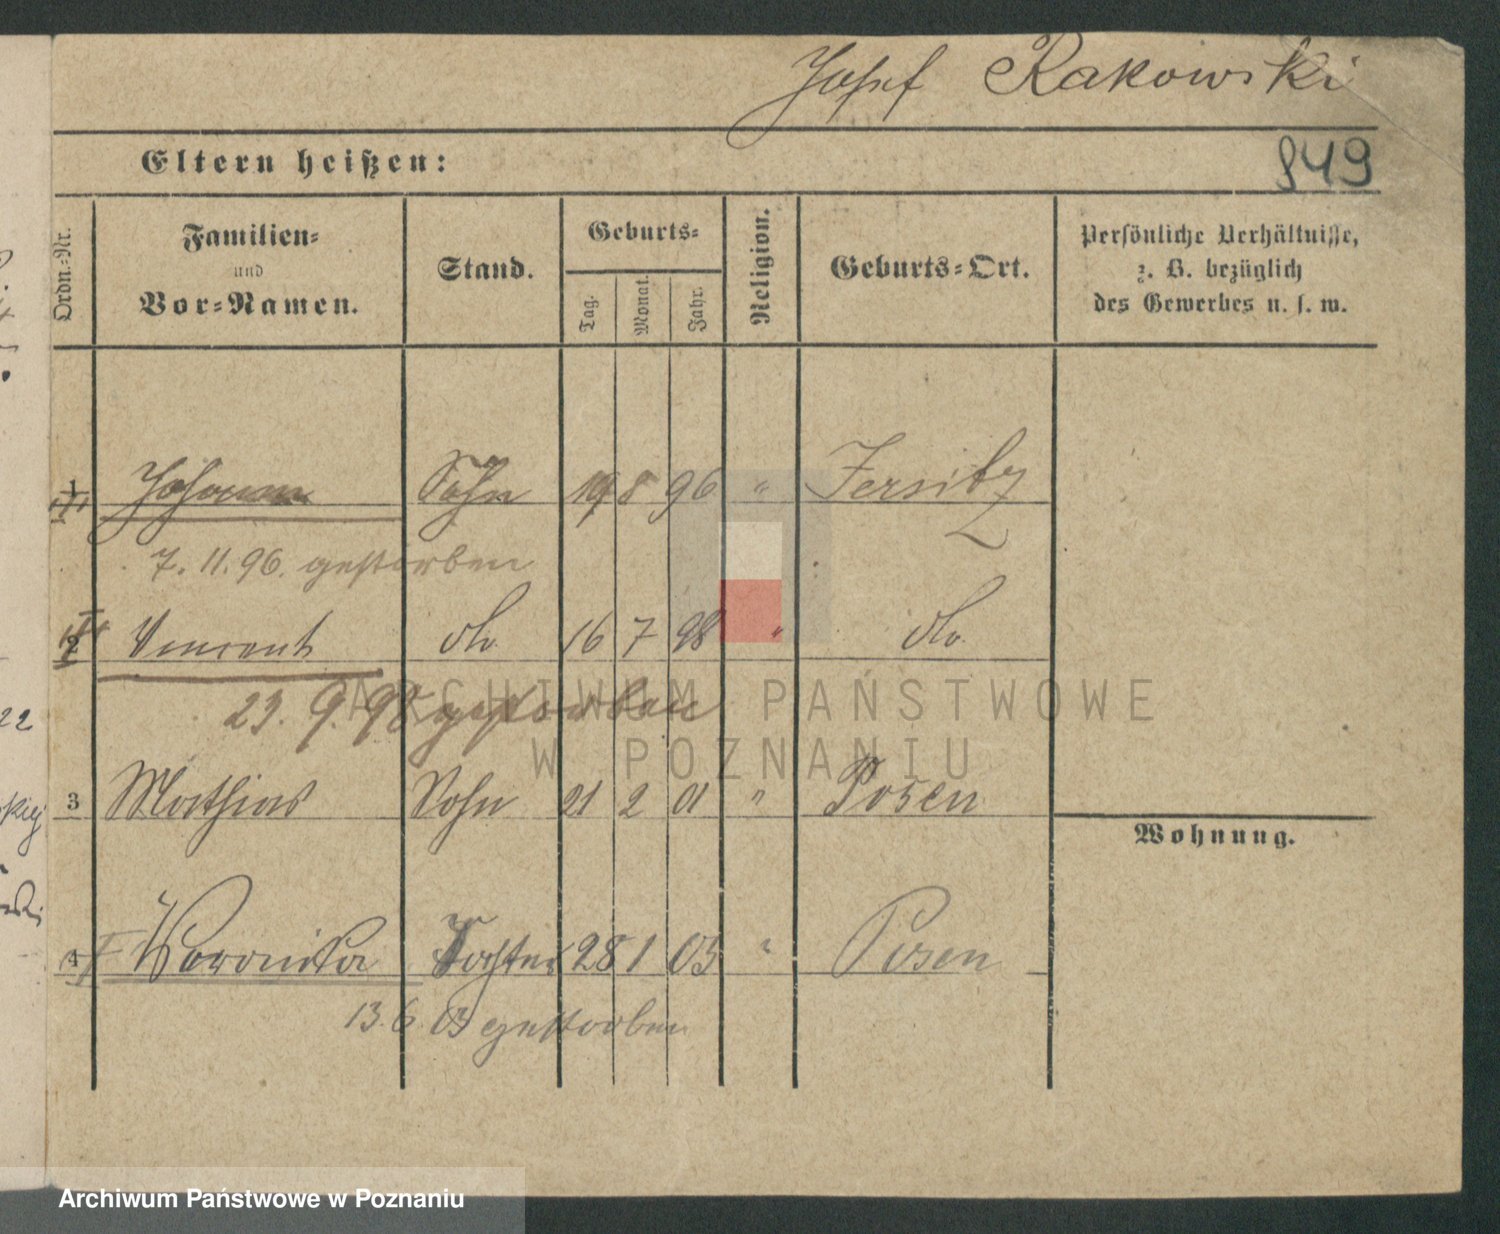 Josef Rakowski
Eltern heißen:
849
Ordn.-Nr.
Familien-
und
Vor-Namen.
Stand.
Geburts-
Tag.
Monat.
Jahr.
Religion.
Geburts-Ort.
Persönliche Verhältnisse,
z. B. bezüglich
des Gewerbes u. s. w.
1 Johann Sohn 19 8 96 " Jersitz
7. 11. 96. gestorben
2 Vincent do 16 7 98 " do
23. 9. 98 gestorben
ARCHIWUM PAŃSTWOWE
W POZNANIU
3 Mathias Sohn 21 2 01 " Posen
Wohnung.
4 Veronika Tochter 28 1 03 " Posen
13. 6. 03 gestorben
Archiwum Państwowe w Poznaniu